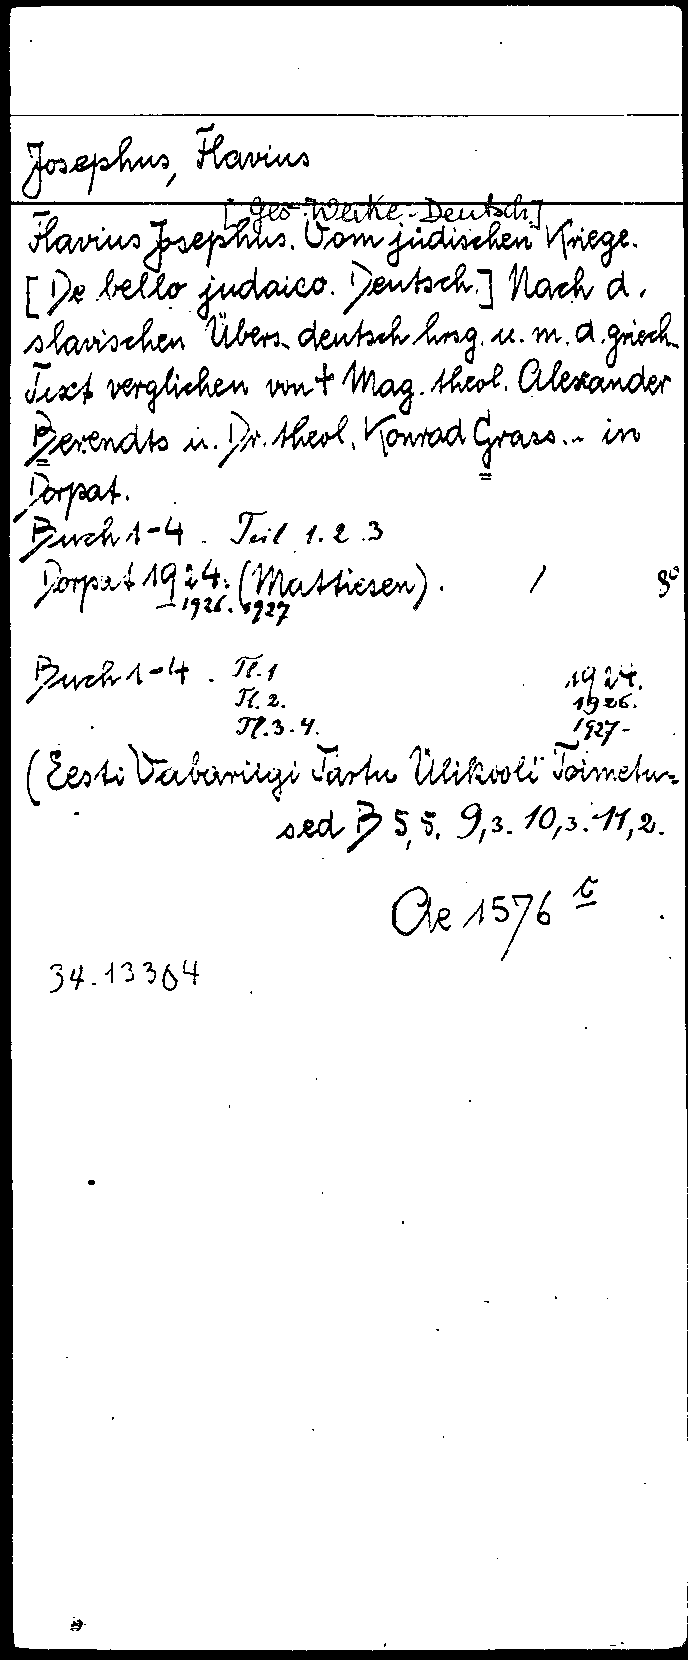 Josephus, Flavius
[Ges. Werke. Deutsch]
Flavius Josephus. Vom jüdischen Kriege.
[De bello judaico. Deutsch.] Nach d.
slavischen Übers. deutsch hrsg. u. m. d. griech.
Text verglichen von † Mag. theol. Alexander
Berendts u. Dr. theol. Konrad Grass .. in
Dorpat.
Buch 1-4. Teil 1. 2. 3
Dorpat 1924. (Mattiesen). / 8°
-1926. 1927
Buch 1-4. Tl. 1 1924.
Tl. 2. 1926.
Tl. 3-4. 1927-
(Eesti Vabariigi Tartu Ülikooli Toimetu=
sed B 5,5. 9,3. 10,3. 11,2.
Ae 1576 c
34.13304